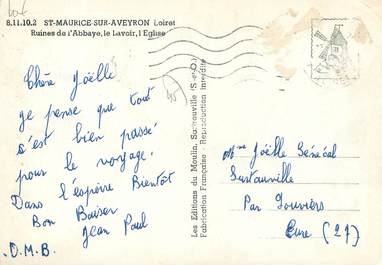 8.11.10.2 ST-MAURICE-SUR-AVEYRON Loiret
Ruines de l'Abbaye, le Lavoir, l'Eglise
Chère Joëlle
je pense que tout
s'est bien passé
pour le voyage.
Dans l'espérire Bientôt
Bon Baiser
Jean Paul
D.M.B.
Les Editions du Moulin, Sartrouville (S.-et-O.)
Fabrication Française - Reproduction interdite
Mme Joëlle Sénécal
Surtauville
Par Louviers
Eure (27)